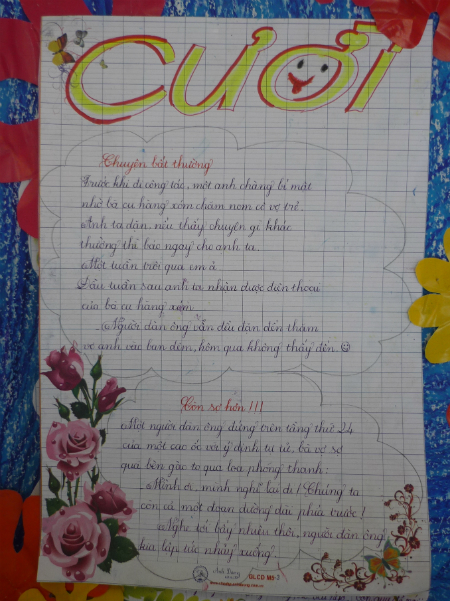 CƯỜI
Chuyện bất thường
Trước khi đi công tác, một anh chàng bí mật
nhờ bà cụ hàng xóm chăm nom cô vợ trẻ.
Anh ta dặn nếu thấy chuyện gì khác
thường thì báo ngay cho anh ta.
Một tuần trôi qua êm ả.
Đầu tuần sau anh ta nhận được điện thoại
của bà cụ hàng xóm.
- Người đàn ông vẫn đều đặn đến thăm
vợ anh vào ban đêm, hôm qua không thấy đến. ☺
Còn sợ hơn !!!
Một người đàn ông đứng trên tầng thứ 24
của một cao ốc với ý định tự tử, bà vợ sợ
quá bèn gào to qua loa phóng thanh:
- Mình ơi, mình nghĩ lại đi! Chúng ta
còn cả một đoạn đường dài phía trước!
Nghe tới bấy nhiêu thôi, người đàn ông
kia lập tức nhảy xuống.